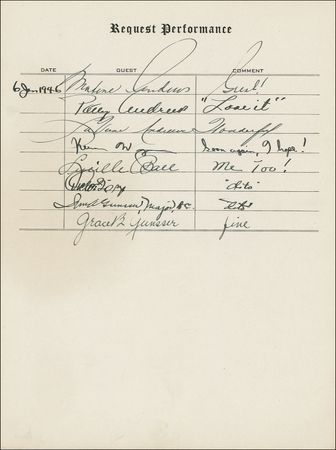 Request Performance
DATE GUEST COMMENT
6 Jan. 1946 Maxene Andrews Great!
Patty Andrews "Love it"
LaVerne Andrews Wonderful
Soon again, I hope!
Lucille Ball Me Too!
"dito"
Gunsser, Major, A.C. "dito"
Grace B. Gunsser fine